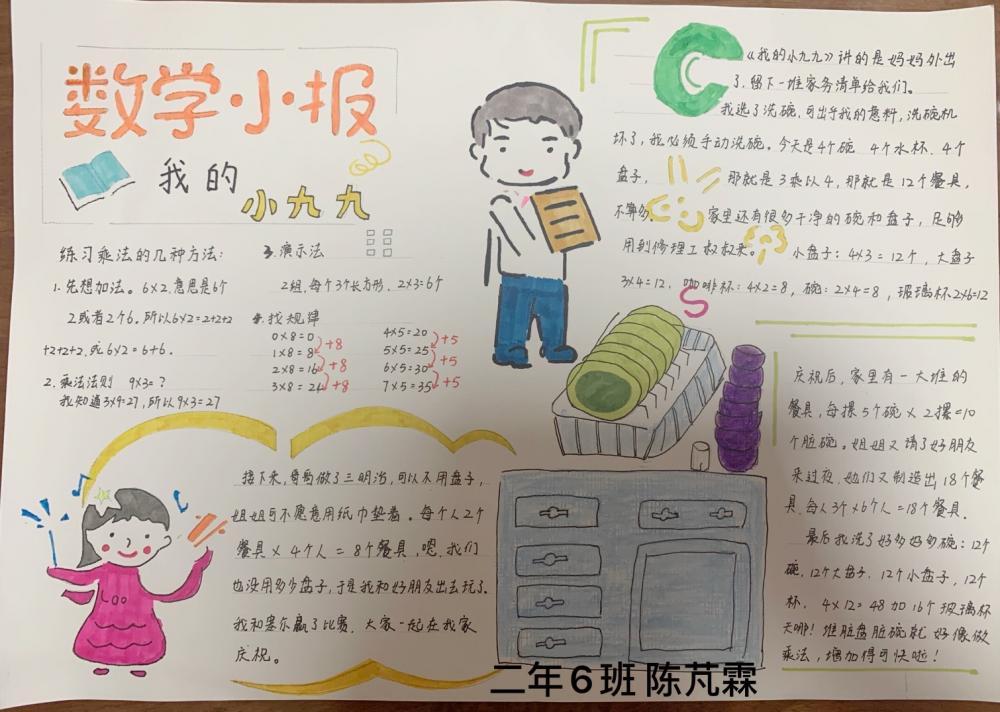 数学·小·报
我的
小九九
练习乘法的几种方法:
1.先想加法。6×2,意思是6个
2或者2个6。所以6×2=2+2+2
+2+2+2,或6×2=6+6.
2.乘法法则 9×3=?
我知道3×9=27,所以9×3=27
3.演示法
2组,每个3个长方形,2×3=6个
4.找规律
0×8=0
1×8=8
2×8=16
3×8=24
+8
+8
+8
4×5=20
5×5=25
6×5=30
7×5=35
+5
+5
+5
《我的小九九》讲的是妈妈外出
了,留下一堆家务清单给我们。
我选了洗碗,可出乎我的意料,洗碗机
坏了,我必须手动洗碗。今天是4个碗 4个水杯、4个
盘子, 那就是3乘以4,那就是12个餐具,
不算多 家里还有很多干净的碗和盘子,足够
用到修理工叔叔来。 小盘子:4×3=12个,大盘子
3×4=12, 咖啡杯:4×2=8,碗:2×4=8,玻璃杯2×6=12
庆祝后,家里有一大堆的
餐具,每摞5个碗×2摞=10
个脏碗。姐姐又请了好朋友
来过夜,她们又制造出18个餐
具,每人3个×6个人=18个餐具.
最后我洗了好多好多碗:12个
碗,12个大盘子,12个小盘子,12个
杯, 4×12=48加16个玻璃杯
天哪!堆脏盘脏碗就好像做
乘法,增加得可快啦!
接下来,哥哥做了三明治,可以不用盘子,
姐姐可不愿意用纸巾垫着。每个人2个
餐具×4个人=8个餐具,嗯,我们
也没用多少盘子,于是我和好朋友出去玩了.
我和塞尔赢了比赛,大家一起在我家
庆祝。
二年6班 陈芃霖